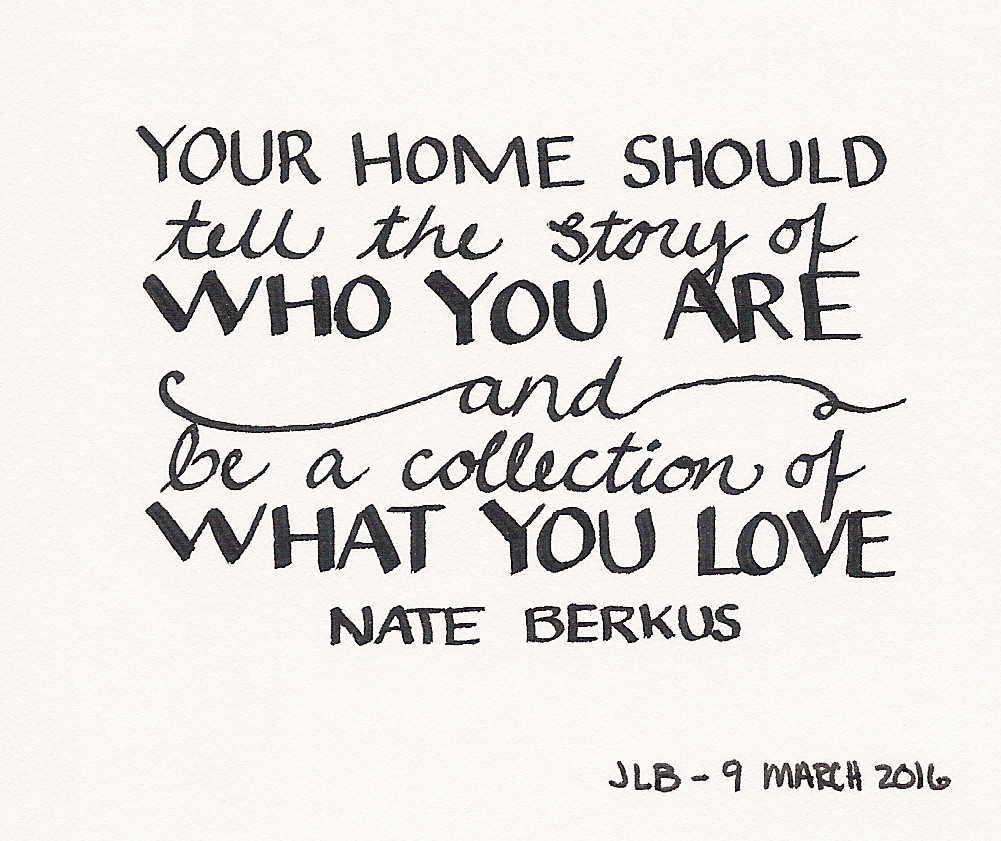 YOUR HOME SHOULD
tell the story of
WHO YOU ARE
and
be a collection of
WHAT YOU LOVE
NATE BERKUS
JLB - 9 MARCH 2016